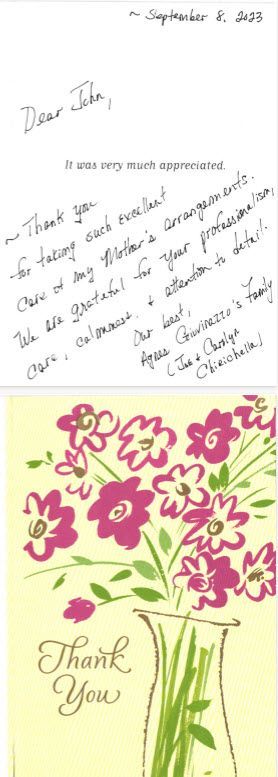 ~ September 8, 2023
Dear John,
It was very much appreciated.
~ Thank you
for taking such excellent
care of my Mother's arrangements.
We are grateful for your professionalism,
care, calmness, & attention to detail.
Our best,
Agnes Giovinazzo's Family
(Joe & Carolyn
Chirichella)
Thank
You